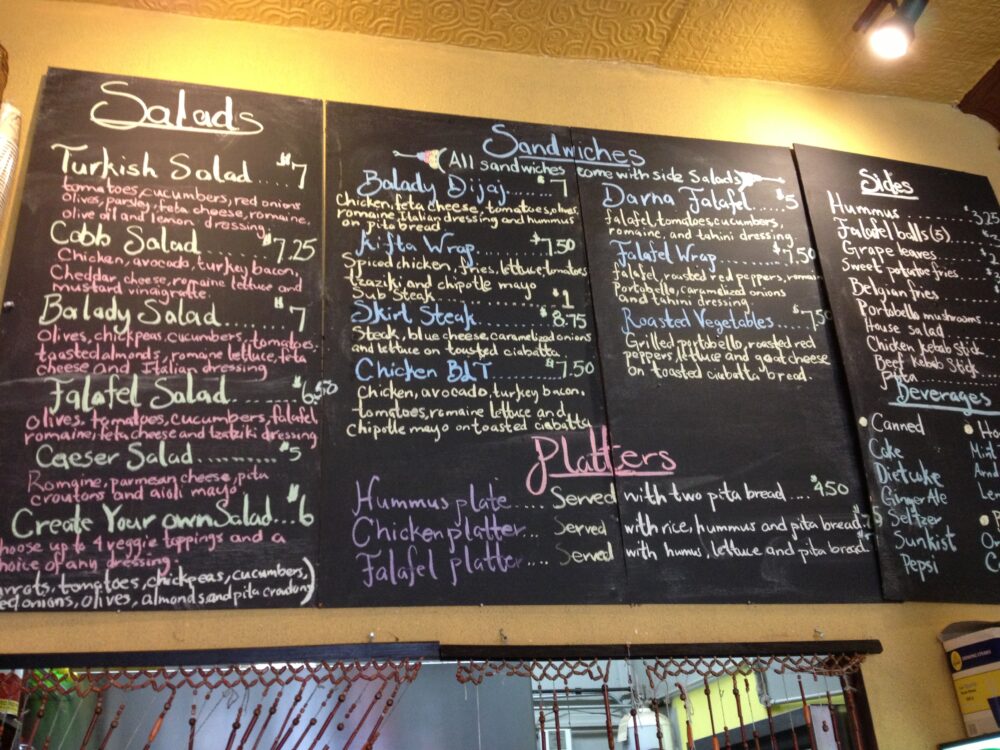 Salads
Turkish Salad....$7
tomatoes, cucumbers, red onions
olives, parsley, feta cheese, romaine,
olive oil and lemon dressing
Cobb Salad......$7.25
Chicken, avocado, turkey bacon,
Cheddar cheese, romaine lettuce and
mustard vinaigratte.
Balady Salad......$7
Olives, chickpeas, cucumbers, tomatoes.
toasted almonds, romaine lettuce, feta
cheese and Italian dressing
Falafel Salad.........$6.50
olives, tomatoes, cucumbers, falafel
romaine, feta cheese and tzatziki dressing
Caeser Salad..........$5
Romaine, parmean cheese, pita
croutons and aioli mayo
Create Your own Salad...$6
choose up to 4 veggie toppings and a
choice of any dressing.
carrots, tomatoes, chickpeas, cucumbers,
red onions, olives, almonds and pita croutons)
Sandwiches
All sandwiches come with side Salads
Balady Dijaj....$7
Chicken, feta cheese, tomatoes, olives,
romaine, Italian dressing and hummus
on pita bread
Kifta Wrap.......$7.50
Spiced chicken, fries, lettuce, tomatoes
tzaziki and chipotle mayo
Sub Steak.............$1
Skirt Steak.........$8.75
Steak, blue cheese, caramelized onions
and lettuce on toasted ciabatta
Chicken BLT.........$7.50
Chicken, avocado, turkey bacon.
tomatoes, romaine lettuce and
Chipotle mayo on toasted ciabatta
Darna Falafel...$5
falafel, tomatoes, cucumbers,
romaine, and tahini dressing
Falafel Wrap.......$7.50
falafel, roasted red peppers, romain
Portobello, caramelized onions
and tahini dressing
Roasted Vegetables....$7.50
Grilled portobello, roasted red
peppers, lettuce and goat cheese
on toasted ciabatta bread.
Platters
Hummus plate.... Served with two pita bread....$4.50
Chicken platter... Served with rice, hummus and pita bread
Falafel platter.... Served with humus, lettuce and pita bread
Sides
Hummus..............$3.25
Falafel balls (5)
Grape leaves
Sweet potatoe fries
Belgian fries
Portobello mushrooms
House salad
Chicken kebab stick
Beef kebab stick
Pita
Beverages
Canned
Coke
Diet coke
Ginger Ale
Seltzer
Sunkist
Pepsi
Mint